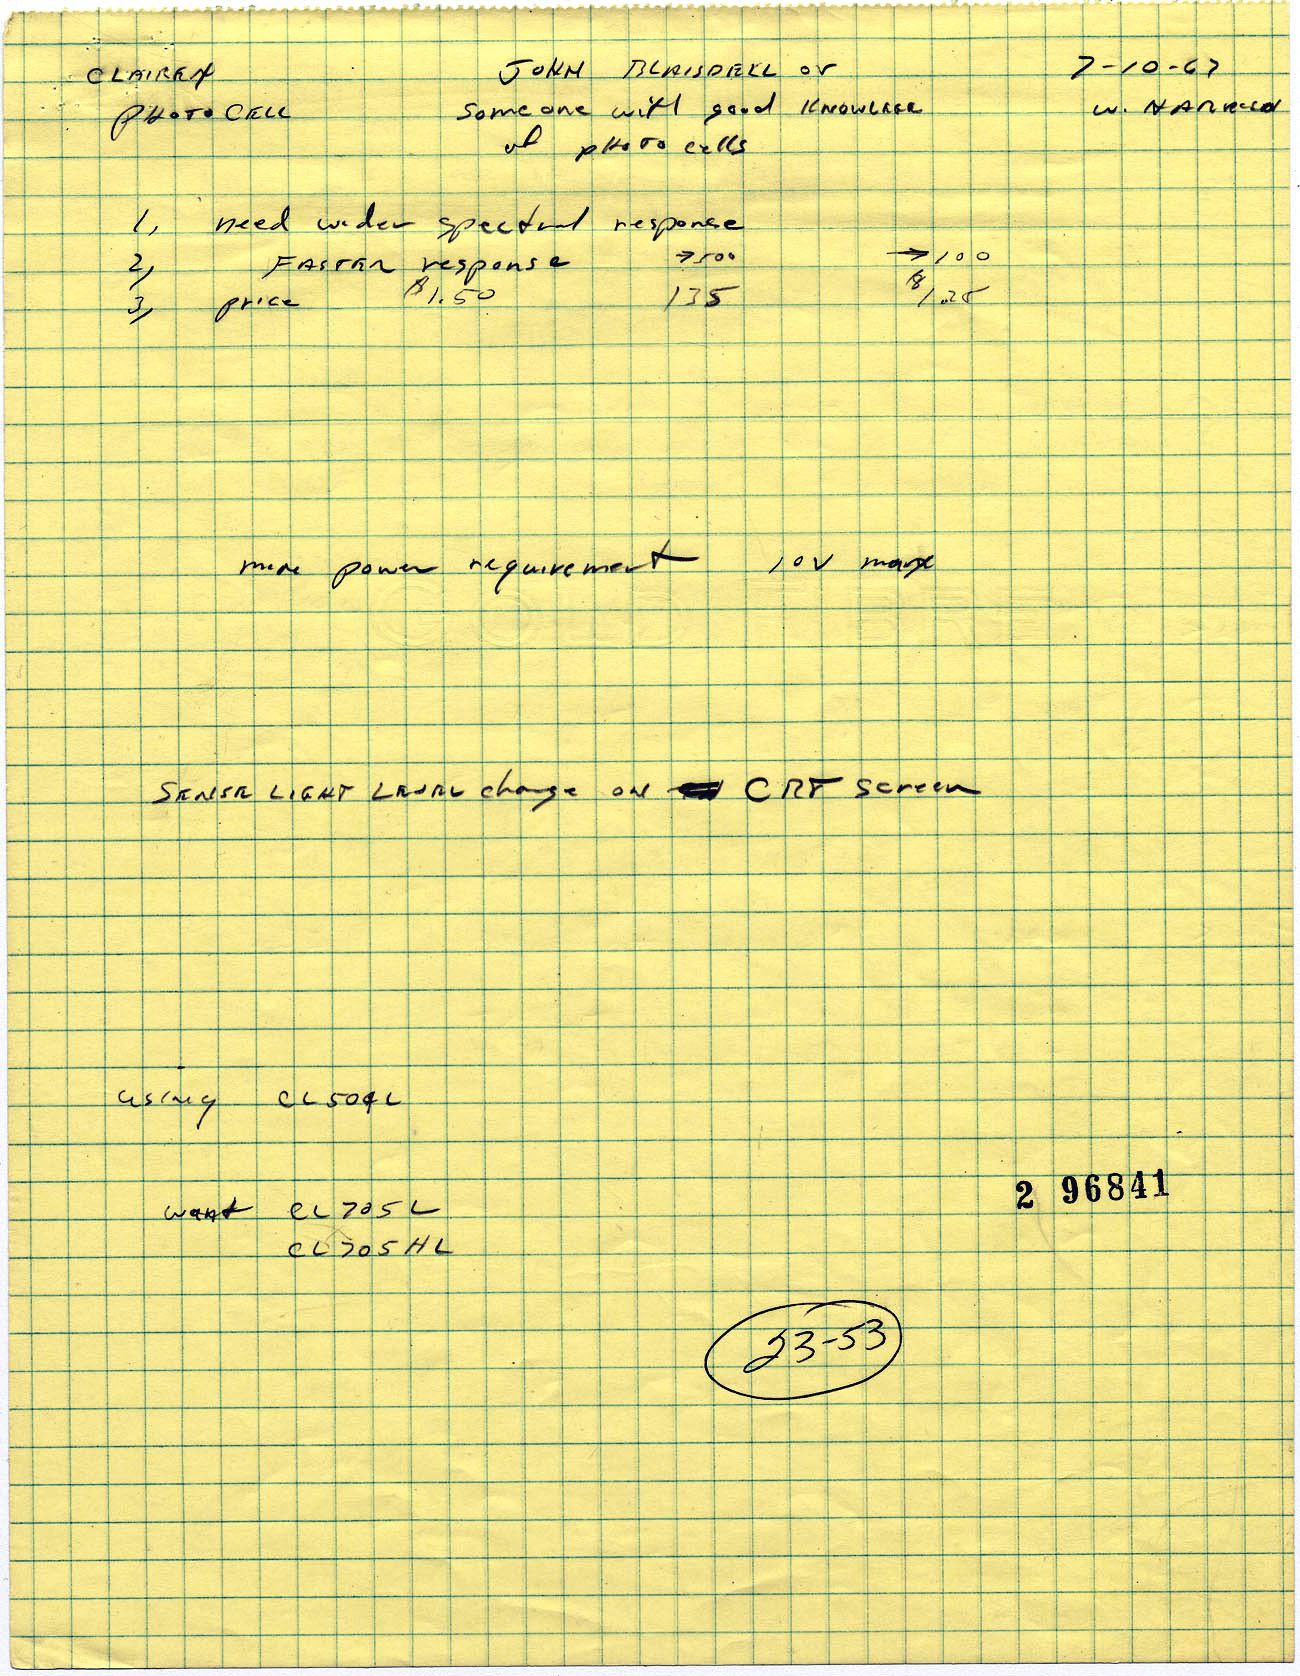 CLAIREX JOHN BLAISDELL or 7-10-67
PHOTOCELL someone with good KNOWLEGE W. HARRISON
of PHOTO cells
1, need wider spectral response
2, FASTER response →500 →100
3, price $1.50 135 $1.25
more power requirement 10V max
SENSE LIGHT LEVEL change on CRT screen
using CL504L
want CL705L
CL705HL
2 96841
23-53